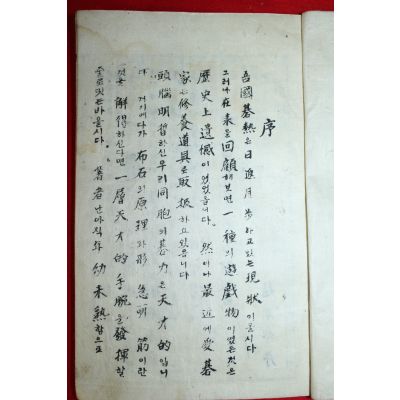 序
吾國碁熱은日進月步하고있는現狀이올시다
그러나在來을回顧해보면一種의遊戲物이었든것은
歷史上遺憾이었었읍니다。然이나最近에愛碁
家의修養道具로取扱하고있읍니다
頭腦明晳하신우리同胞의碁力은天才的입니
다 거기에다가布石의原理와形 急所 筋이란
것을解得하신다면一層天才的手腕을發揮할
줄로믿는바올시다。著者난아직幼未熟함으로